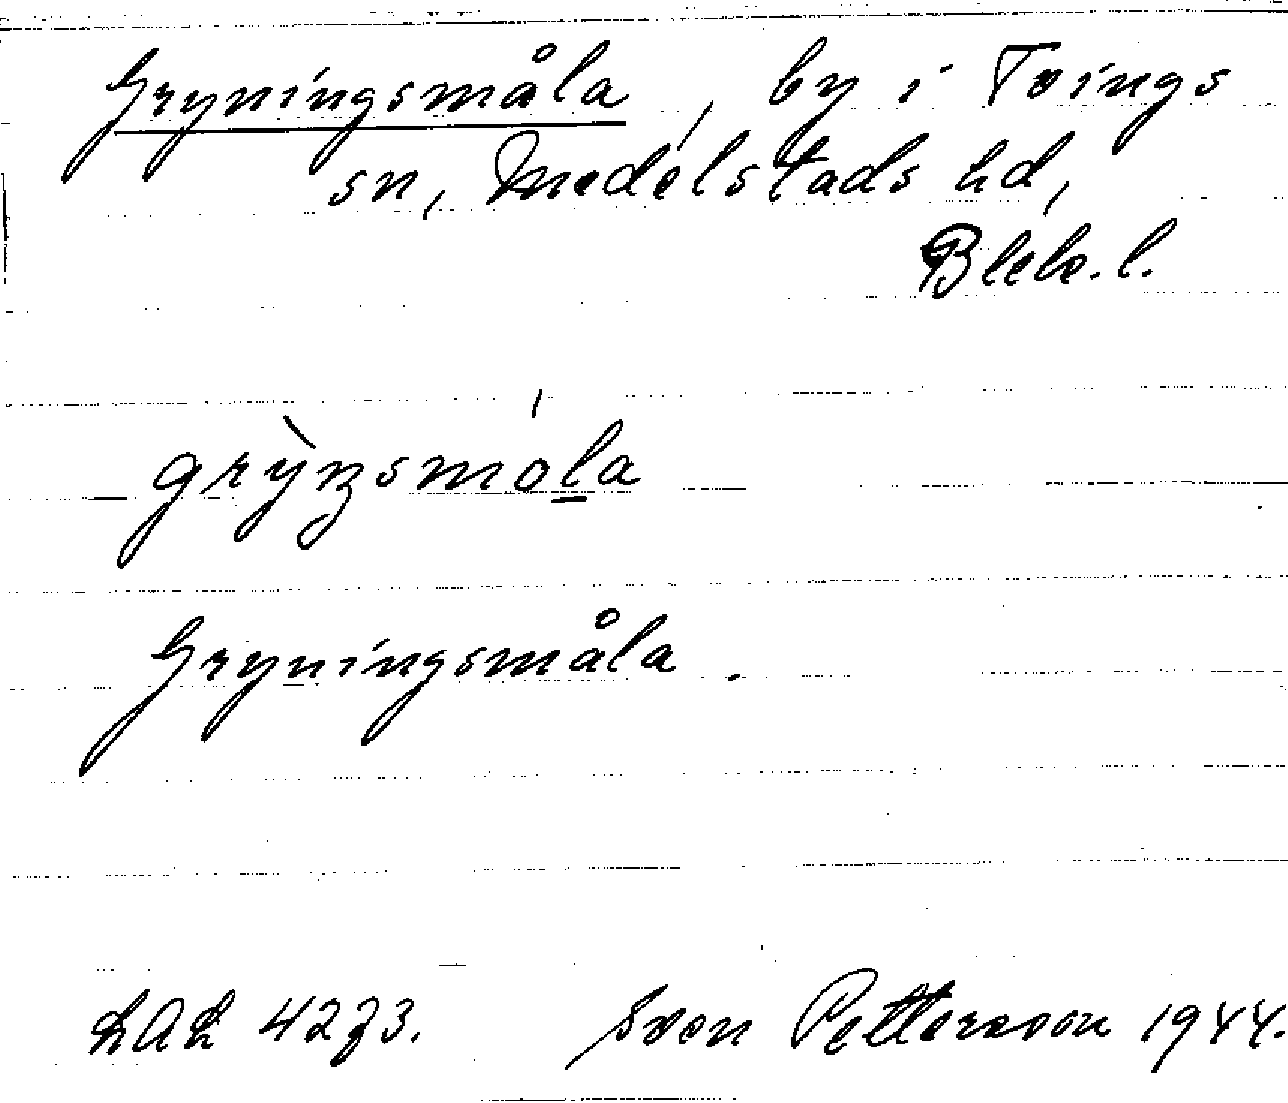 Gryningsmåla, by i Tvings
sn, Medelstads hd,
Blek. l.
Gryningsmåla.
LAL 4273. Sven Pettersson 1944.